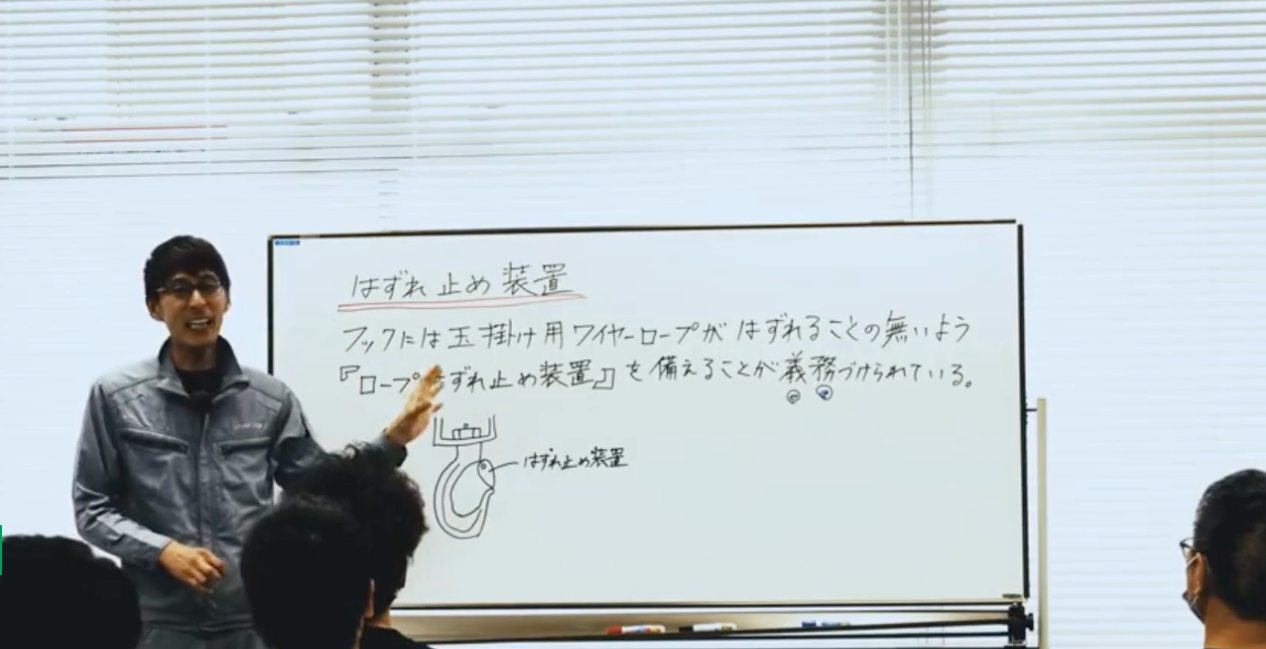 はずれ止め装置
フックには玉掛け用ワイヤーロープがはずれることの無いよう
『ロープはずれ止め装置』を備えることが義務づけられている。
はずれ止め装置